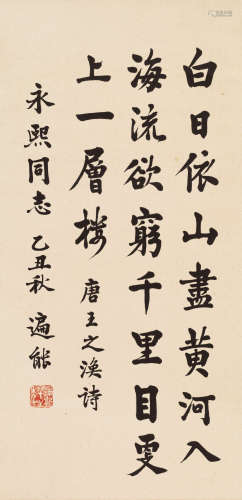 白日依山盡黄河入
海流欲窮千里目更
上一層楼 唐王之渙詩
永熙同志 乙丑秋 遍能